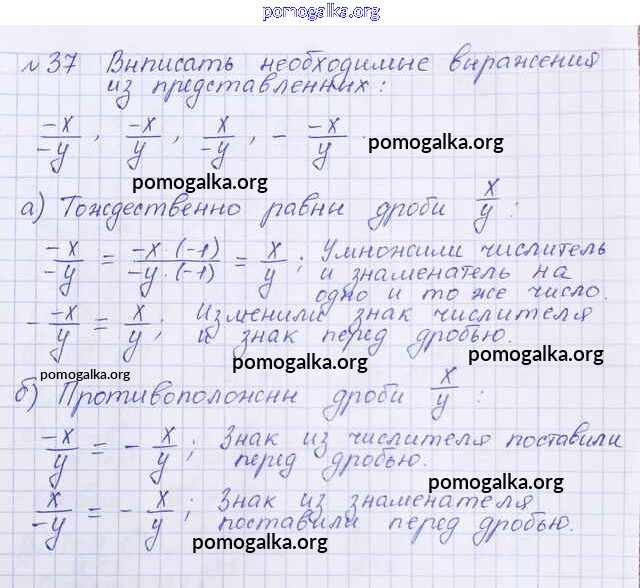 pomogalka.org
№ 37 Выписать необходимые выражения
из представленных:
-x/-y, -x/y, x/-y, - -x/y. pomogalka.org
pomogalka.org
а) Тождественно равны дроби x/y:
-x/-y = -x·(-1)/-y·(-1) = x/y; Умножили числитель
и знаменатель на
одно и то же число.
- -x/y = x/y; Изменили знак числителя
и знак перед дробью.
pomogalka.org pomogalka.org pomogalka.org
б) Противоположны дроби x/y:
-x/y = - x/y; Знак из числителя поставили
перед дробью.
pomogalka.org
x/-y = - x/y; Знак из знаменателя
поставили перед дробью.
pomogalka.org